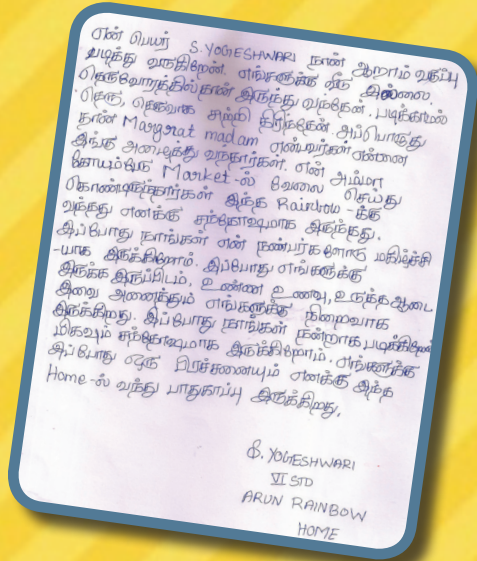 என் பெயர் S.YOGESHWARI நான் ஆறாம் வகுப்பு
படித்து வருகிறேன். எங்களுக்கு வீடு இல்லை.
தெருவோரத்தில்தான் இருந்து வந்தேன். படிக்காமல்
தெரு, தெருவாக சுற்றி திரிந்தேன். அப்பொழுது
தான் Margarat madam என்பவர்கள் என்னை
இங்கு அழைத்து வந்தார்கள். என் அம்மா
கோயம்பேடு Market-ல் வேலை செய்து
கொண்டிருந்தார்கள் இந்த Rainbow-க்கு
வந்தது எனக்கு சந்தோஷமாக இருந்தது.
அப்போது நாங்கள் என் நண்பர்களோடு மகிழ்ச்சி
-யாக இருக்கிறோம். இப்போது எங்களுக்கு
இருக்க இருப்பிடம், உண்ண உணவு, உடுத்த ஆடை
இவை அனைத்தும் எங்களுக்கு நிறைவாக
இருக்கிறது. இப்போது நாங்கள் நன்றாக படிக்கிறோம்
மிகவும் சந்தோஷமாக இருக்கிறோம். எங்களுக்கு
இப்போது ஒரு பிரச்சனையும் எனக்கு இந்த
Home-ல் வந்து பாதுகாப்பு இருக்கிறது.
S. YOGESHWARI
VI STD
ARUN RAINBOW
HOME